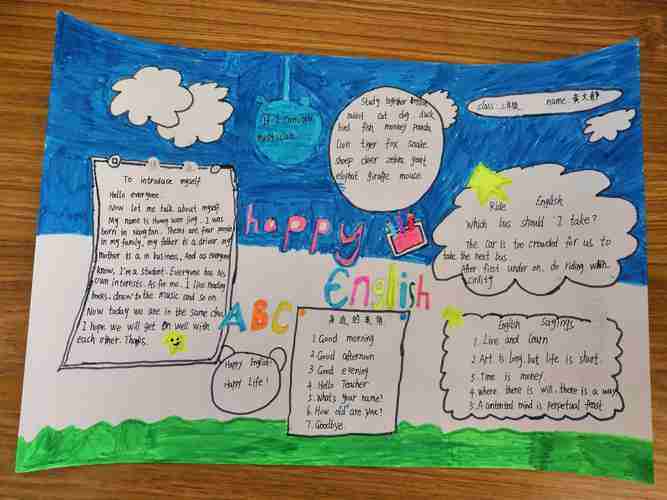 If I can, you
must can.
Study together
rabbit cat dog duck
bird fish monkey panda
Lion tiger fox snake
sheep deer zebra goat
elephat giraffe mouse
class: name:
To introduce myself
Hello everyone
Now let me talk about myself
My name is Huang wen jing. I was
born in Nangtan. There are four people
in my family, my father is a driver my
Mother is a in business, And as everyone
knows, I'm a student. Everyone has his
own interests. As for me, I like reading
books, draw to the music and so on.
Now today we are in the same class
I hope we will get on well with
each other. Thanks.
happy
English
ABC
Ride English
Which bus should I take?
The car is too crowded for us to
take the next bus
After first under on, do riding with
civility
Happy English!
Happy Life!
身边的英语
1. Good morning
2. Good afternoon
3. Good evening
4. Hello Teacher
5. What's your name?
6. How old are you?
7. Goodbye.
English sayings
1. Live and learn
2. Art is long, but life is short.
3. Time is money
4. Where there is will, there is a way
5. A contented mind is perpetual feast